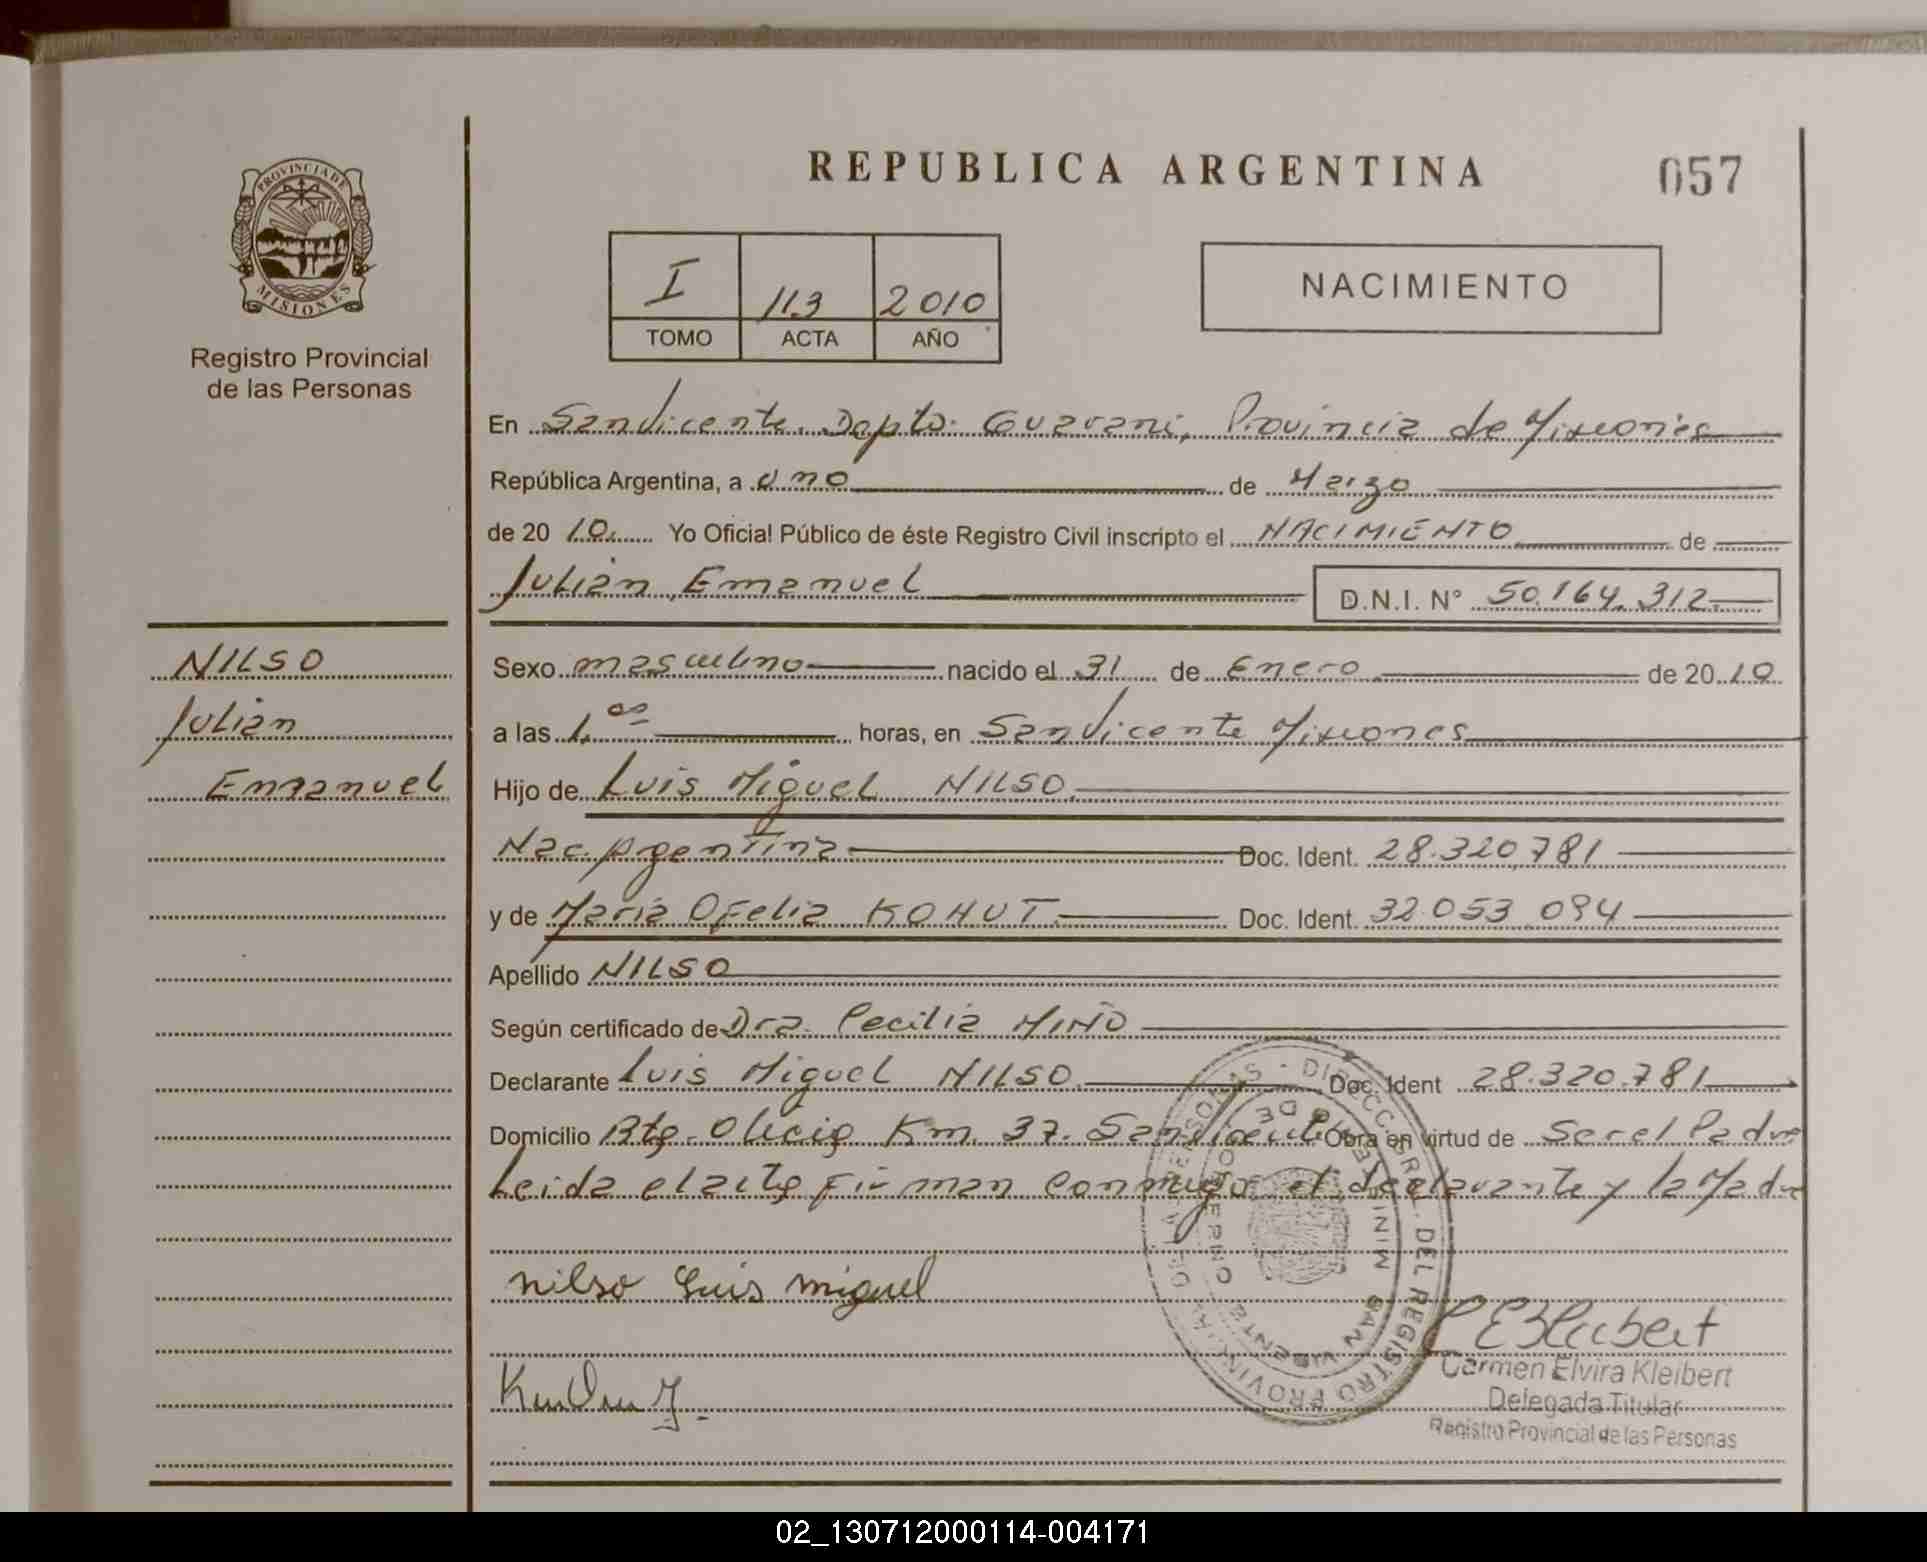 PROVINCIA DE
MISIONES
Registro Provincial
de las Personas
REPUBLICA ARGENTINA
057
I 113 2010
TOMO ACTA AÑO
NACIMIENTO
En San Vicente. Dapto. Guarani, Provincia de Misiones
República Argentina, a uno de Marzo
de 20 10. Yo Oficial Público de éste Registro Civil inscripto el NACIMIENTO de
Julián Emanuel D.N.I. N° 50.164.312
NILSO
Julián
Emanuel
Sexo masculino nacido el 31 de Enero de 20 10
a las 1.00 horas, en San Vicente Misiones
Hijo de Luis Miguel NILSO.
Nac. Argentina Doc. Ident. 28.320.781
y de María Ofelia KOHUT. Doc. Ident. 32.053.094
Apellido NILSO
Según certificado de Dra. Cecilia MIÑO
Declarante Luis Miguel NILSO. Doc. Ident 28.320.781
Domicilio Km. 37. San Vicente Obra en virtud de Ser el Padre
Leida el acta firman conmigo el declarante y la Madre
nilso Luis miguel
CEKleibert
Carmen Elvira Kleibert
Delegada Titular
Registro Provincial de las Personas
DIRECC. GRAL. DEL REGISTRO PROVINCIAL DE LAS PERSONAS
MINISTERIO DE GOBIERNO
SAN VICENTE
02_130712000114-004171